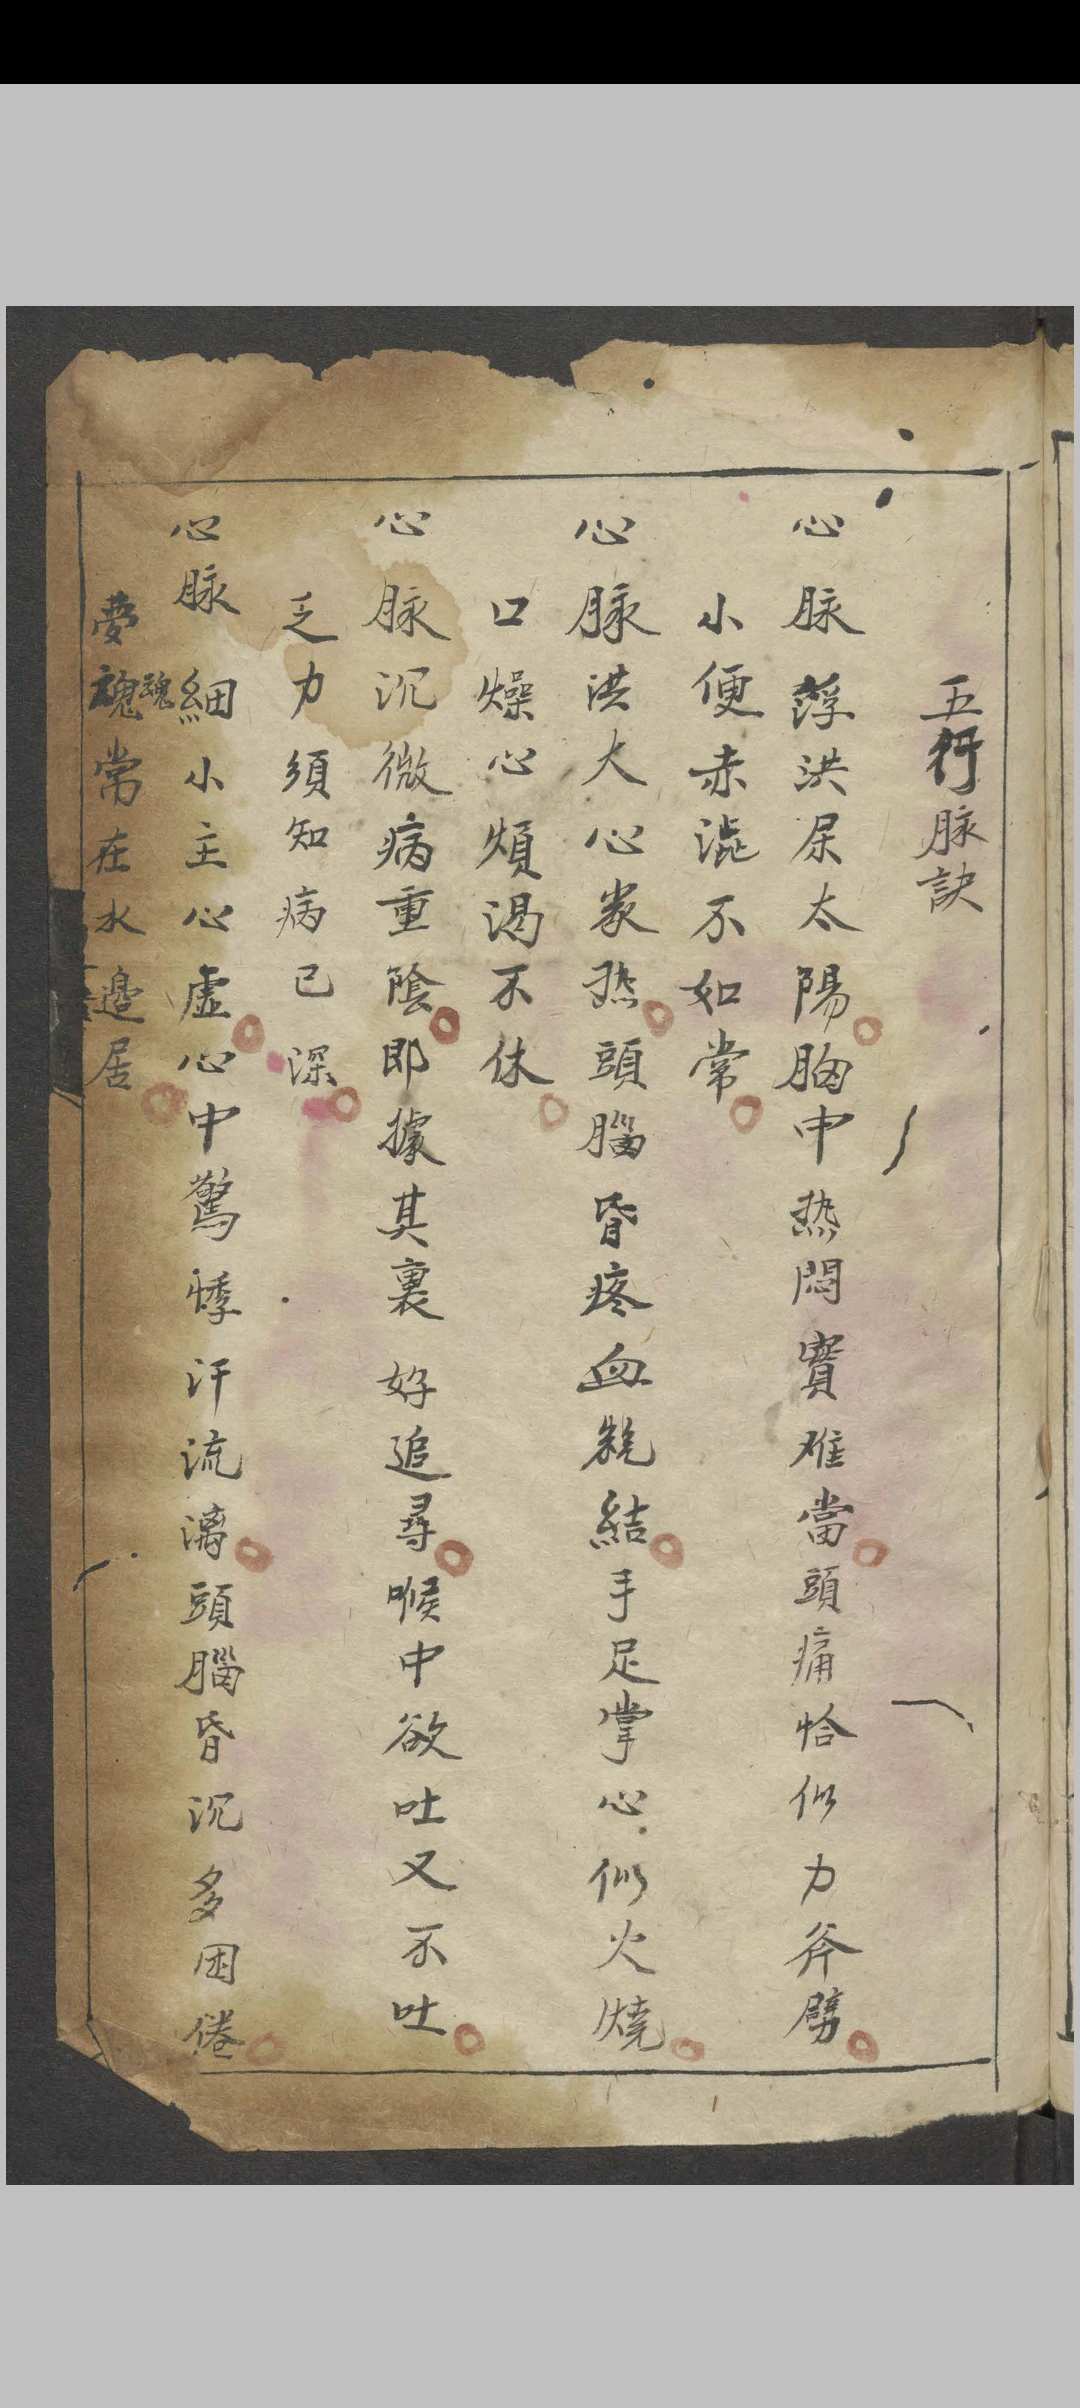 五行脉訣
心脉浮洪尿太陽胸中热悶實难當頭痛恰似力斧劈
小便赤澁不如常
心脉洪大心家热頭腦昏疼血耗結手足掌心似火燒
口燥心煩渴不休
心脉沉微病重陰即據其裏好追尋喉中欲吐又不吐
乏力須知病已深
心脉細小主心虛心中驚悸汗流漓頭腦昏沉多困倦
夢魂常在水邊居
魂